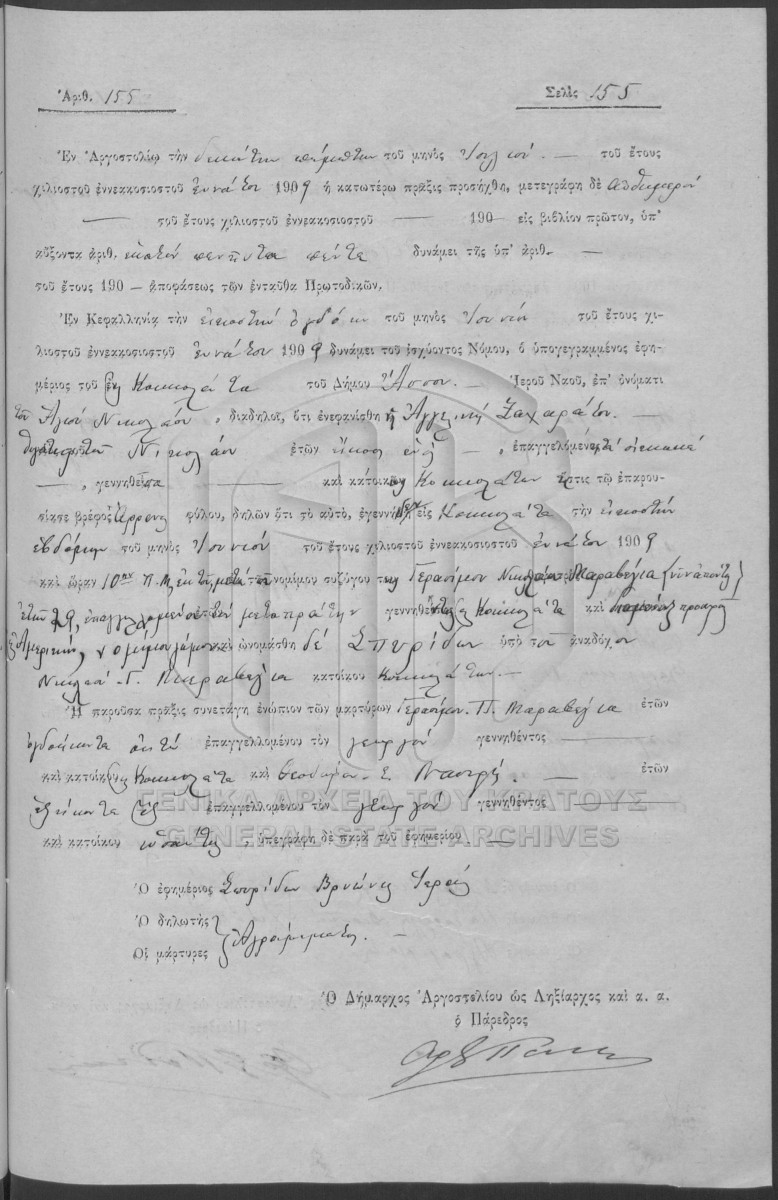 Ἀριθ. 155
Σελὶς 155
Ἐν Ἀργοστολίῳ τὴν δεκάτην πέμπτην τοῦ μηνὸς Ἰουλίου. — τοῦ ἔτους
χιλιοστοῦ ἐννεακοσιοστοῦ ἐννάτου 1909 ἡ κατωτέρω πρᾶξις προσήχθη, μετεγράφη δὲ αὐθημερόν
— τοῦ ἔτους χιλιοστοῦ ἐννεακοσιοστοῦ — 190— εἰς βιβλίον πρῶτον, ὑπ'
αὔξοντα ἀριθ. ἑκατὸν πενῆντα πέντε δυνάμει τῆς ὑπ' ἀριθ. —
τοῦ ἔτους 190 — ἀποφάσεως τῶν ἐνταῦθα Πρωτοδικῶν.
Ἐν Κεφαλληνίᾳ τὴν εἰκοστὴν ὀγδόην τοῦ μηνὸς Ἰουνίου τοῦ ἔτους χι-
λιοστοῦ ἐννεακοσιοστοῦ ἐννάτου 1909 δυνάμει τοῦ ἰσχύοντος Νόμου, ὁ ὑπογεγραμμένος ἐφη-
μέριος τοῦ ἐν Κοκκολάτα τοῦ Δήμου Ἄσσου. — Ἱεροῦ Ναοῦ, ἐπ' ὀνόματι
τοῦ Ἁγίου Νικολάου, διαδηλοῖ, ὅτι ἐνεφανίσθη ἡ Ἀγγελικὴ Ζαχαράτου. —
θυγάτηρ τοῦ Νικολάου ἐτῶν εἴκοσι —, ἐπαγγελομένη τὰ οἰκιακά
—, γεννηθεῖσα — καὶ κάτοικος Κοκκολάτων ἥτις τῷ ἐπαρου-
σίασε βρέφος ἄρρενος φύλου, δηλῶν ὅτι τὸ αὐτὸ, ἐγεννήθη εἰς Κοκκολάτα τὴν εἰκοστὴν
ἑβδόμην τοῦ μηνὸς Ἰουνίου τοῦ ἔτους χιλιοστοῦ ἐννεακοσιοστοῦ ἐννάτου 1909
καὶ ὥραν 10ην π.μ. ἐκ τῆς μετὰ τοῦ νομίμου συζύγου της Γερασίμου Νικολάου Μαραβέγια
ἐτῶν 29, ἐπαγγελομένου τὸν μεταπράτην γεννηθέντος Κοκκολάτα καὶ
Ἀμερικήν, γάμου καὶ ὠνομάσθη δὲ Σπυρίδων ὑπὸ τοῦ ἀναδόχου
Νικολάου Γ. Μαραβέγια κατοίκου Κοκκολάτων. —
Ἡ παροῦσα πρᾶξις συνετάγη ἐνώπιον τῶν μαρτύρων Γερασίμου Π. Μαραβέγια ἐτῶν
ὀγδοήκοντα ὀκτὼ ἐπαγγελλομένου τὸν γεωργόν γεννηθέντος —
καὶ κατοίκου Κοκκολάτα καὶ — ἐτῶν
ἑξήκοντα ἓξ ἐπαγγελλομένου τὸν γεωργόν γεννηθέντος —
καὶ κατοίκου, ὑπεγράφη δὲ παρὰ τοῦ ἐφημερίου. —
ΓΕΝΙΚΑ ΑΡΧΕΙΑ ΤΟΥ ΚΡΑΤΟΥΣ
GENERAL STATE ARCHIVES
Ὁ ἐφημέριος Σπυρίδων Βρυώνης Ἱερεύς
Ὁ δηλωτὴς
Οἱ μάρτυρες } Ἀγράμματοι. —
Ὁ Δήμαρχος Ἀργοστολίου ὡς Ληξίαρχος καὶ α. α.
ὁ Πάρεδρος